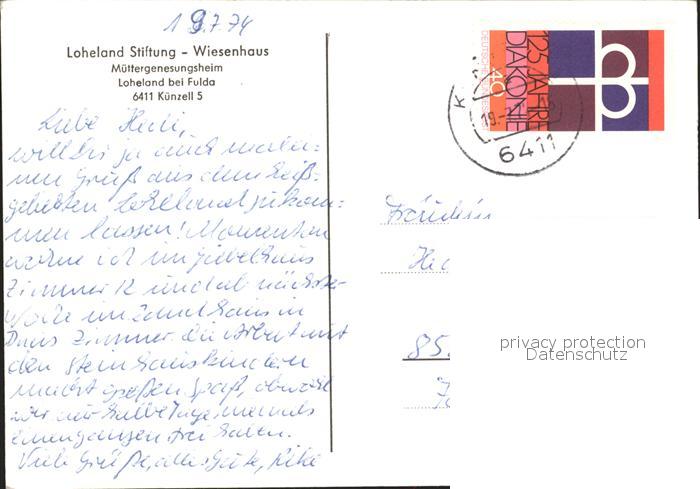 19.7.74
Loheland Stiftung - Wiesenhaus
Müttergenesungsheim
Loheland bei Fulda
6411 Künzell 5
Liebe Heidi,
will Dir ja auch mal ei-
nen Gruß aus dem heiß-
geliebten Loheland zukom-
men lassen! Momentan
wohne ich im Giebelhaus
Zimmer 12 und ab nächster
Woche im Landhaus in
Zimmer. Die Arbeit mit
den
macht großen Spaß, obwohl
wir nur halbe Tage, niemals
einen ganzen frei haben.
Viele Grüße, alles Gute, Rike
125 JAHRE
DIAKONIE
DEUTSCHE BUNDESPOST
40
19.-7.
6411
Fräulein
He
85
privacy protection
Datenschutz